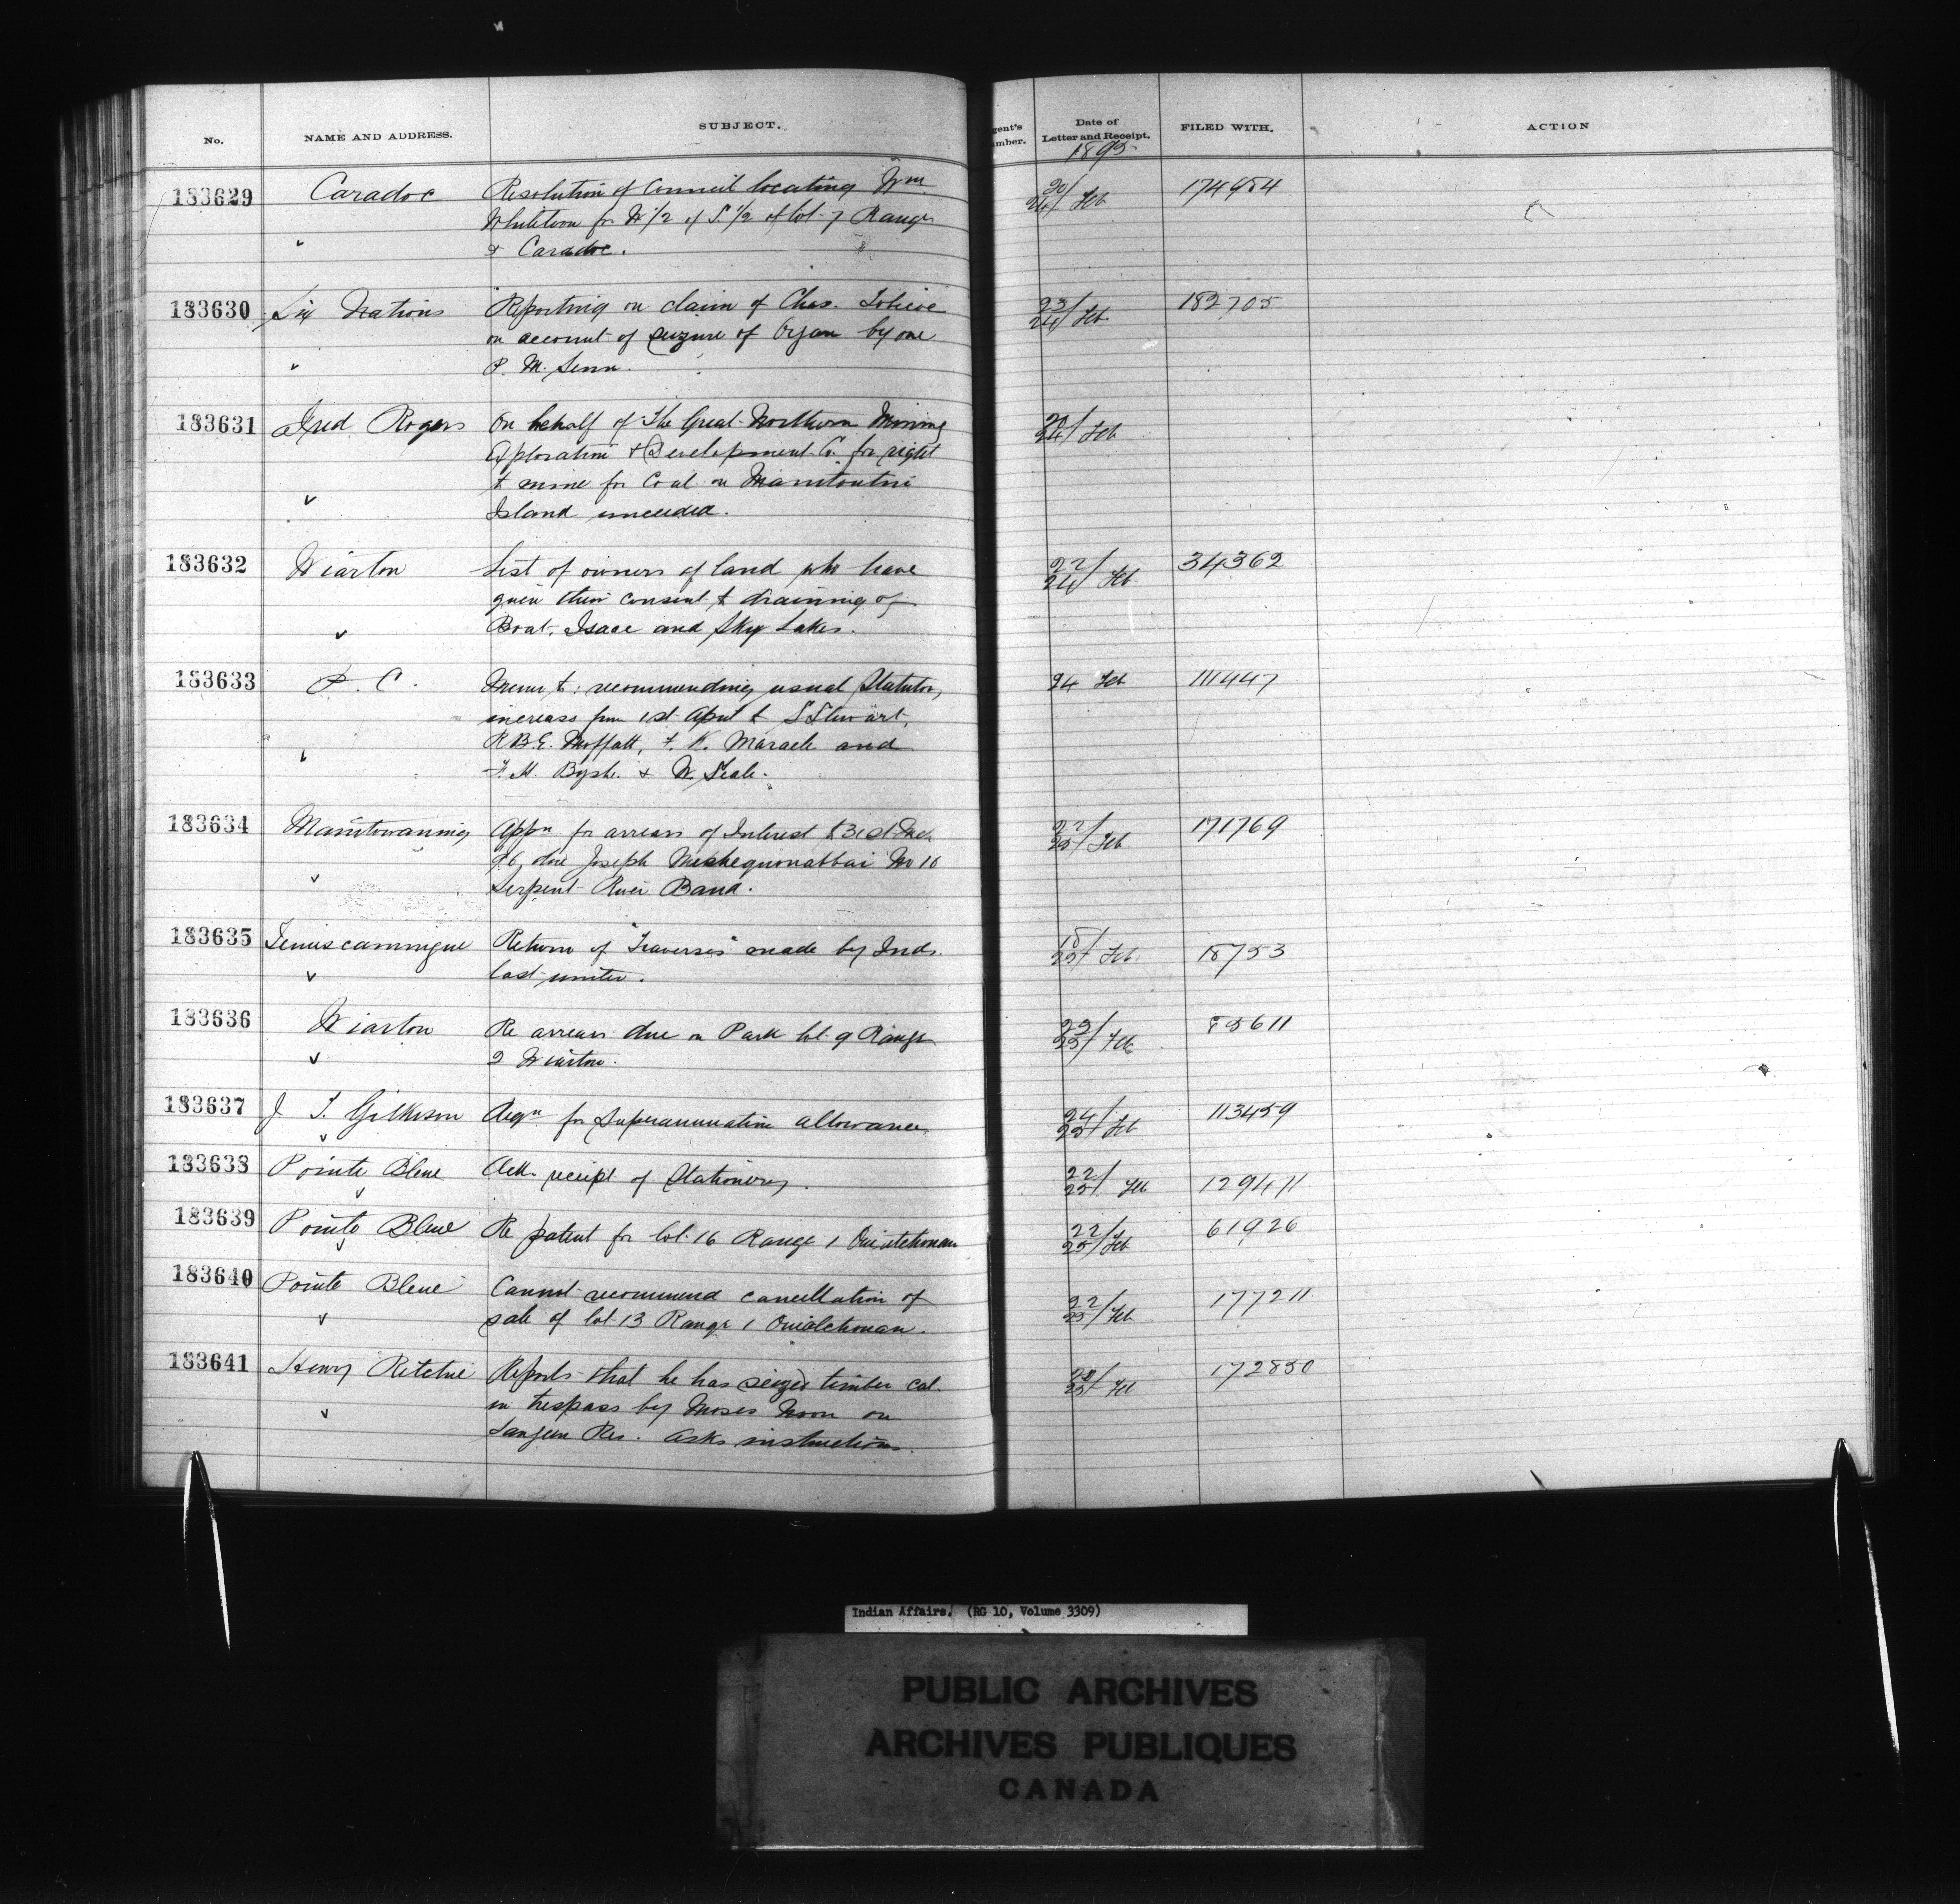 No. NAME AND ADDRESS. SUBJECT. gent's umber. Date of Letter and Receipt. FILED WITH. ACTION
1895
183629 Caradoc Resolution of Council locating Wm 20/24 Feb 174984
for W 1/2 of S. 1/2 of lot 7 Range
& Caradoc.
183630 Six Nations Reporting on claim of Chas. 23/24 Feb. 182705
on account of seizure of Organ by one
P. M. Senn.
183631 Fred Rogers On behalf of The Great Northern Mining /24 Feb
Exploration & Development Co. for right
to mine for Coal on Manitoulin
Island unceded.
183632 Wiarton List of owners of land who have 22/24 Feb. 34362
given their consent to draining of
Boat, Isaac and Sky Lakes.
183633 P. C. Memo to: recommending usual Statutory 24 Feb 111447
increass from 1st April to S Stewart,
R.B.E. Moffatt, F. W. Maracle and
F. H. Byshe & W. Seale.
183634 Manitowaning Appn for arrears of Interest to 31st 22/25 Feb 171769
due Joseph No 10
Serpent River Band.
183635 Temiscamingue Return of "Traverses" made by Inds. 18/25 Feb. 18753
last winter.
183636 Wiarton Re arrears due on Park lot 9 Range 23/25 Feb 85611
2 Wiarton.
183637 J. T. Gilkison Reqn for Superannuation allowance. 24/25 Feb 113459
183638 Pointe Bleue Ack. receipt of Stationery. 22/25 Feb 129471
183639 Pointe Bleue Re patent for lot 16 Range 1 Ouiatchouan 22/25 Feb 61926
183640 Pointe Bleue Cannot recommend cancellation of 22/25 Feb 177211
sale of lot 13 Range 1 Ouiatchouan.
183641 Henry Ritchie Reports that he has seized timber cut /25 Feb 172850
in trespass by Moses Moon on
Saugeen Res. Asks instructions.
Indian Affairs. (RG 10, Volume 3309)
PUBLIC ARCHIVES
ARCHIVES PUBLIQUES
CANADA